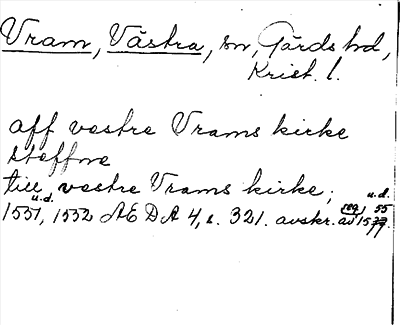 Vram, Västra, sn, Gärds hd,
Krist. l.
aff vestre Vrams kirke
steffne
till vestre Vrams kirke;
u.d. u.d.
1551, 1552 ÆDA 4, s. 321. avskr. av 15
reg. 55